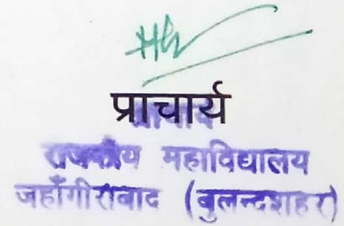 प्राचार्य
राजकीय महाविद्यालय
जहाँगीराबाद (बुलन्दशहर)